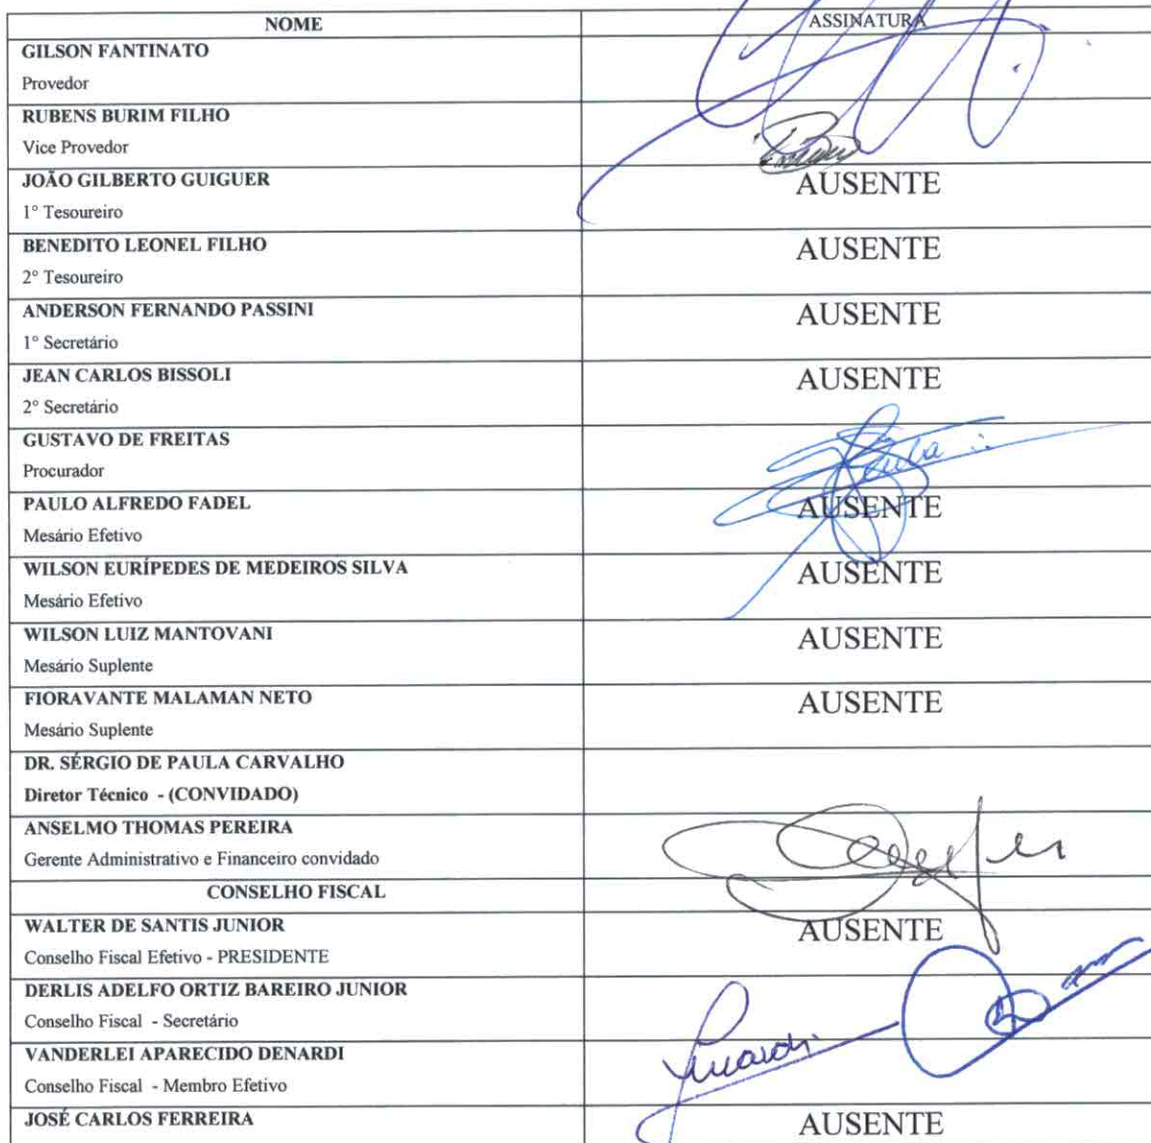 NOME ASSINATURA
GILSON FANTINATO
Provedor
RUBENS BURIM FILHO
Vice Provedor
JOÃO GILBERTO GUIGUER AUSENTE
1° Tesoureiro
BENEDITO LEONEL FILHO AUSENTE
2° Tesoureiro
ANDERSON FERNANDO PASSINI AUSENTE
1° Secretário
JEAN CARLOS BISSOLI AUSENTE
2° Secretário
GUSTAVO DE FREITAS
Procurador
PAULO ALFREDO FADEL AUSENTE
Mesário Efetivo
WILSON EURÍPEDES DE MEDEIROS SILVA AUSENTE
Mesário Efetivo
WILSON LUIZ MANTOVANI AUSENTE
Mesário Suplente
FIORAVANTE MALAMAN NETO AUSENTE
Mesário Suplente
DR. SÉRGIO DE PAULA CARVALHO
Diretor Técnico - (CONVIDADO)
ANSELMO THOMAS PEREIRA
Gerente Administrativo e Financeiro convidado
CONSELHO FISCAL
WALTER DE SANTIS JUNIOR AUSENTE
Conselho Fiscal Efetivo - PRESIDENTE
DERLIS ADELFO ORTIZ BAREIRO JUNIOR
Conselho Fiscal - Secretário
VANDERLEI APARECIDO DENARDI
Conselho Fiscal - Membro Efetivo
JOSÉ CARLOS FERREIRA AUSENTE